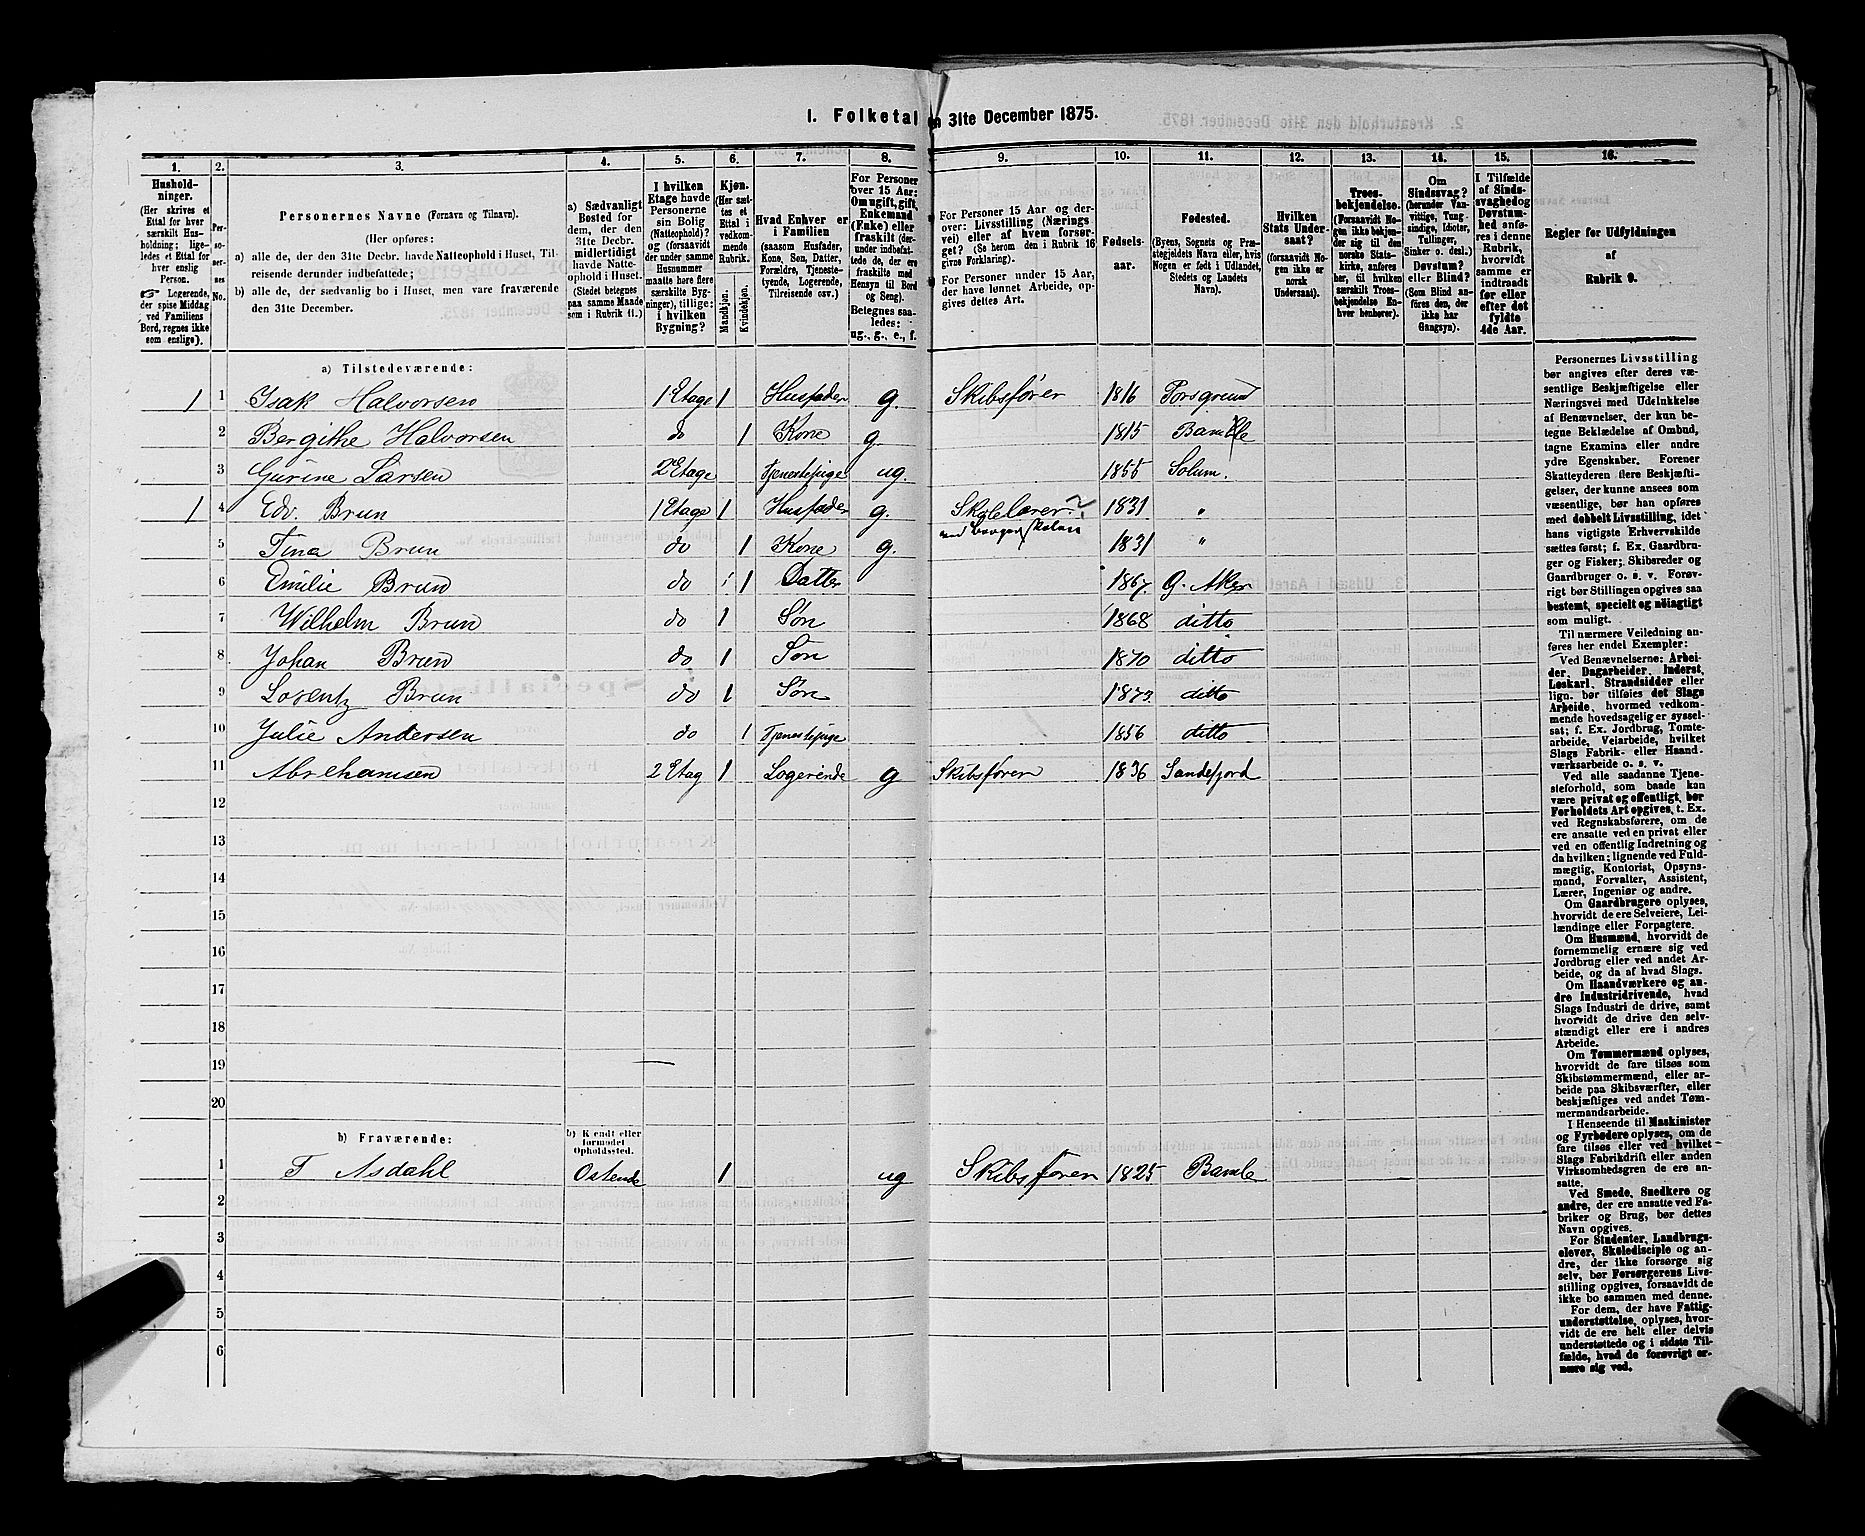 I. Folketal den 31te December 1875.
1. 2. 3. 4. 5. 6. 7. 8. 9. 10. 11. 12. 13. 14. 15. 16.
Hushold-
ninger.
(Her skrives et
Ettal for hver
særskilt Hus-
holdning; lige-
ledes et Ettal for
hver enslig
Person.
☞ Logerende,
der spise Middag
ved Familiens
Bord, regnes ikke
som enslige).
Per-
so-
ner-
nes
No.
Personernes Navne (Fornavn og Tilnavn).
(Her opføres:
a) alle de, der den 31te Decbr. havde Natteophold i Huset, Til-
reisende derunder indbefattede;
b) alle de, der sædvanlig bo i Huset, men vare fraværende
den 31te December.
a) Sædvanligt
Bosted for
dem, der den
31te Decbr.
midlertidigt
havde Natte-
ophold i Huset.
(Stedet betegnes
paa samme Maade
som i Rubrik 11.)
I hvilken
Etage havde
Personerne
sin Bolig
(Natteophold)?
og (forsaavidt
der under samme
Husnummer
maatte høre flere
særskilte Byg-
ninger), tillige:
i hvilken
Bygning?
Kjøn.
(Her sæt-
tes et
Ettal i
vedkom-
mende
Rubrik.
Mandkjøn.
Kvindekjøn.
Hvad Enhver er
i Familien
(saasom Husfader,
Kone, Søn, Datter,
Forældre, Tjeneste-
tyende, Logerende,
Tilreisende osv.)
For Personer
over 15 Aar:
Om ugift, gift,
Enkemand
(Enke) eller
fraskilt (der-
under indbefat-
tede de, der ere
fraskilte med
Hensyn til Bord
og Seng).
Betegnes saa-
ledes:
ug., g., e., f.
For Personer 15 Aar og der-
over: Livsstilling (Nærings
vei) eller af hvem forsør-
get? (Se herom den i Rubrik 16
givne Forklaring).
For Personer under 15 Aar,
der have lønnet Arbeide, op-
gives dettes Art.
Fødsels-
aar.
Fødested.
(Byens, Sognets og Præ-
stegjeldets Navn eller, hvis
Nogen er født i Udlandet,
Stedets og Landets
Navn).
Hvilken
Stats Under-
saat?
(forsaavidt No-
gen ikke er
norsk
Undersaat).
Troes-
bekjendelse.
(Forsaavidt No-
gen ikke bekjen-
der sig til den
norske Stats-
kirke, anføres
her, til hvilken
særskilt Troes-
bekjendelse En-
hver henhører).
Om
Sindssvag?
(herunder Van-
vittige, Tung-
sindige, Idioter,
Tullinger,
Sinker o. desl.)
Døvstum?
eller Blind?
(Som Blind an-
føres den, der
ikke har
Gangsyn).
I Tilfælde
af Sinds-
svaghed og
Døvstum-
hed anfø-
res i denne
Rubrik,
hvorvidt
samme er
indtraadt
før eller
efter det
fyldte
4de Aar.
Regler for Udfyldningen
af
Rubrik 9.
a) Tilstedeværende:
1 1 Isak Halvorsen 1 Etage 1 Husfader g. Skibsfører 1816 Porsgrund
2 Bergithe Halvorsen do 1 Kone g 1815 Bamble
3 Gurine Larsen 2 Etage Tjenestepige ug. 1855 Solum.
1 4 Edv. Brun 1 Etage 1 Husfader g. Skolelærer ? 1831 "
ved borgerskolen
5 Tina Brun do 1 Kone g. 1831 "
6 Emilie Brun do 1 Datter 1867. G. Aker
7 Wilhelm Brun do 1 Søn 1868 ditto
8 Johan Brun do 1 Søn 1870 ditto
9 Lorentz Brun do 1 Søn 1873. ditto
10 Julie Andersen do 1 Tjenestepige 1856 ditto
11 Abrehamsen 2 Etag 1 Logerende g Skibsfører 1836 Sandefjord
12
13
14
15
16
17
18
19
20
b) Fraværende:
b) Kjendt eller
formodet
Opholdssted.
1 T Asdahl Ostende 1 ug Skibsfører 1825 Bamle
2
3
4
5
6
Personernes Livsstilling
bør angives efter deres væ-
sentlige Beskjæftigelse eller
Næringsvei med Udelukkelse
af Benævnelser, der kun be-
tegne Beklædelse af Ombud,
tagne Examina eller andre
ydre Egenskaber. Forener
Skatteyderen flere Beskjæfti-
gelser, der kunne ansees som
væsentlige, bør han opføres
med dobbelt Livsstilling, idet
hans vigtigste Erhvervskilde
sættes først; f. Ex. Gaardbru-
ger og Fisker; Skibsreder og
Gaardbruger o. s. v. Forøv-
rigt bør Stillingen opgives saa
bestemt, specielt og nøiagtigt
som muligt.
Til nærmere Veiledning an-
føres her endel Exempler:
Ved Benævnelserne: Arbei-
der, Dagarbeider, Inderst,
Løskarl, Strandsidder eller
lign. bør tilføies det Slags
Arbeide, hvormed vedkom-
mende hovedsagelig er syssel-
sat; f. Ex. Jordbrug, Tomte-
arbeide, Veiarbeide, hvilket
Slags Fabrik- eller Haand-
værksarbeide o. s. v.
Ved alle saadanne Tjene-
steforhold, som baade kan
være privat og offentligt, bør
Forholdets Art opgives, t. Ex.
ved Regnskabsførere, om de
ere ansatte ved en privat eller
ved en offentlig Indretning og
da hvilken; lignende ved Fuld-
mægtig, Kontorist, Opsyns-
mand, Forvalter, Assistent,
Lærer, Ingeniør og andre.
Om Gaardbrugere oplyses,
hvorvidt de ere Selveiere, Lei-
lændinge eller Forpagtere.
Om Husmænd, hvorvidt de
fornemmelig ernære sig ved
Jordbrug eller ved andet Ar-
beide, og da af hvad Slags.
Om Haandværkere og an-
dre Industridrivende, hvad
Slags Industri de drive, samt
hvorvidt de drive den selv-
stændigt eller ere i andres
Arbeide.
Om Tømmermænd oplyses,
hvorvidt de fare tilsøs som
Skibstømmermænd, eller ar-
beide paa Skibsværfter, eller
beskjæftiges ved andet Tøm-
mermandsarbeide.
I Henseende til Maskinister
og Fyrbødere oplyses, om de
fare tilsøs eller ved hvilket
Slags Fabrikdrift eller anden
Virksomhedsgren de ere an-
satte.
Ved Smede, Snedkere og
andre, der ere ansatte ved Fa-
briker og Brug, bør dettes
Navn opgives.
For Studenter, Landbrugs-
elever, Skoledisciple og an-
dre, der ikke forsørge sig
selv, bør Forsørgerens Livs-
stilling opgives, forsaavidt de
ikke bo sammen med denne.
For dem, der have Fattig-
understøttelse, oplyses, hvor-
vidt de ere helt eller delvis
understøttede og i sidste Til-
fælde, hvad de forøvrigt er-
nære sig ved.